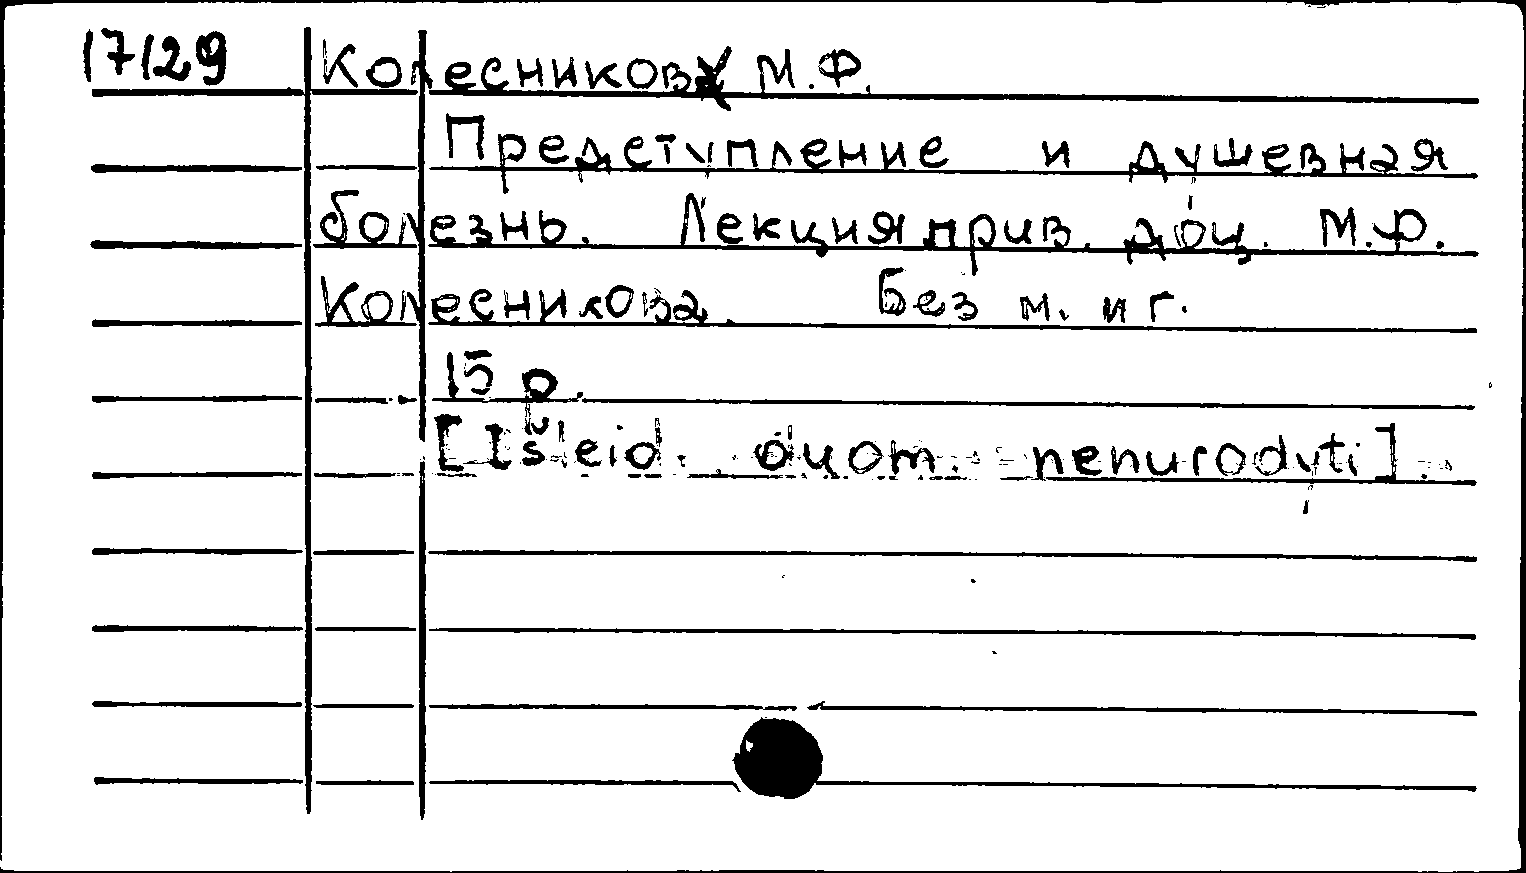 17129 Колесников М.Ф.
Предступление и душевная
болезнь. Лекция прив. доц. М.Ф.
Колесникова. Без м. и г.
15 p.
[Išleid. duom. nenurodyti].